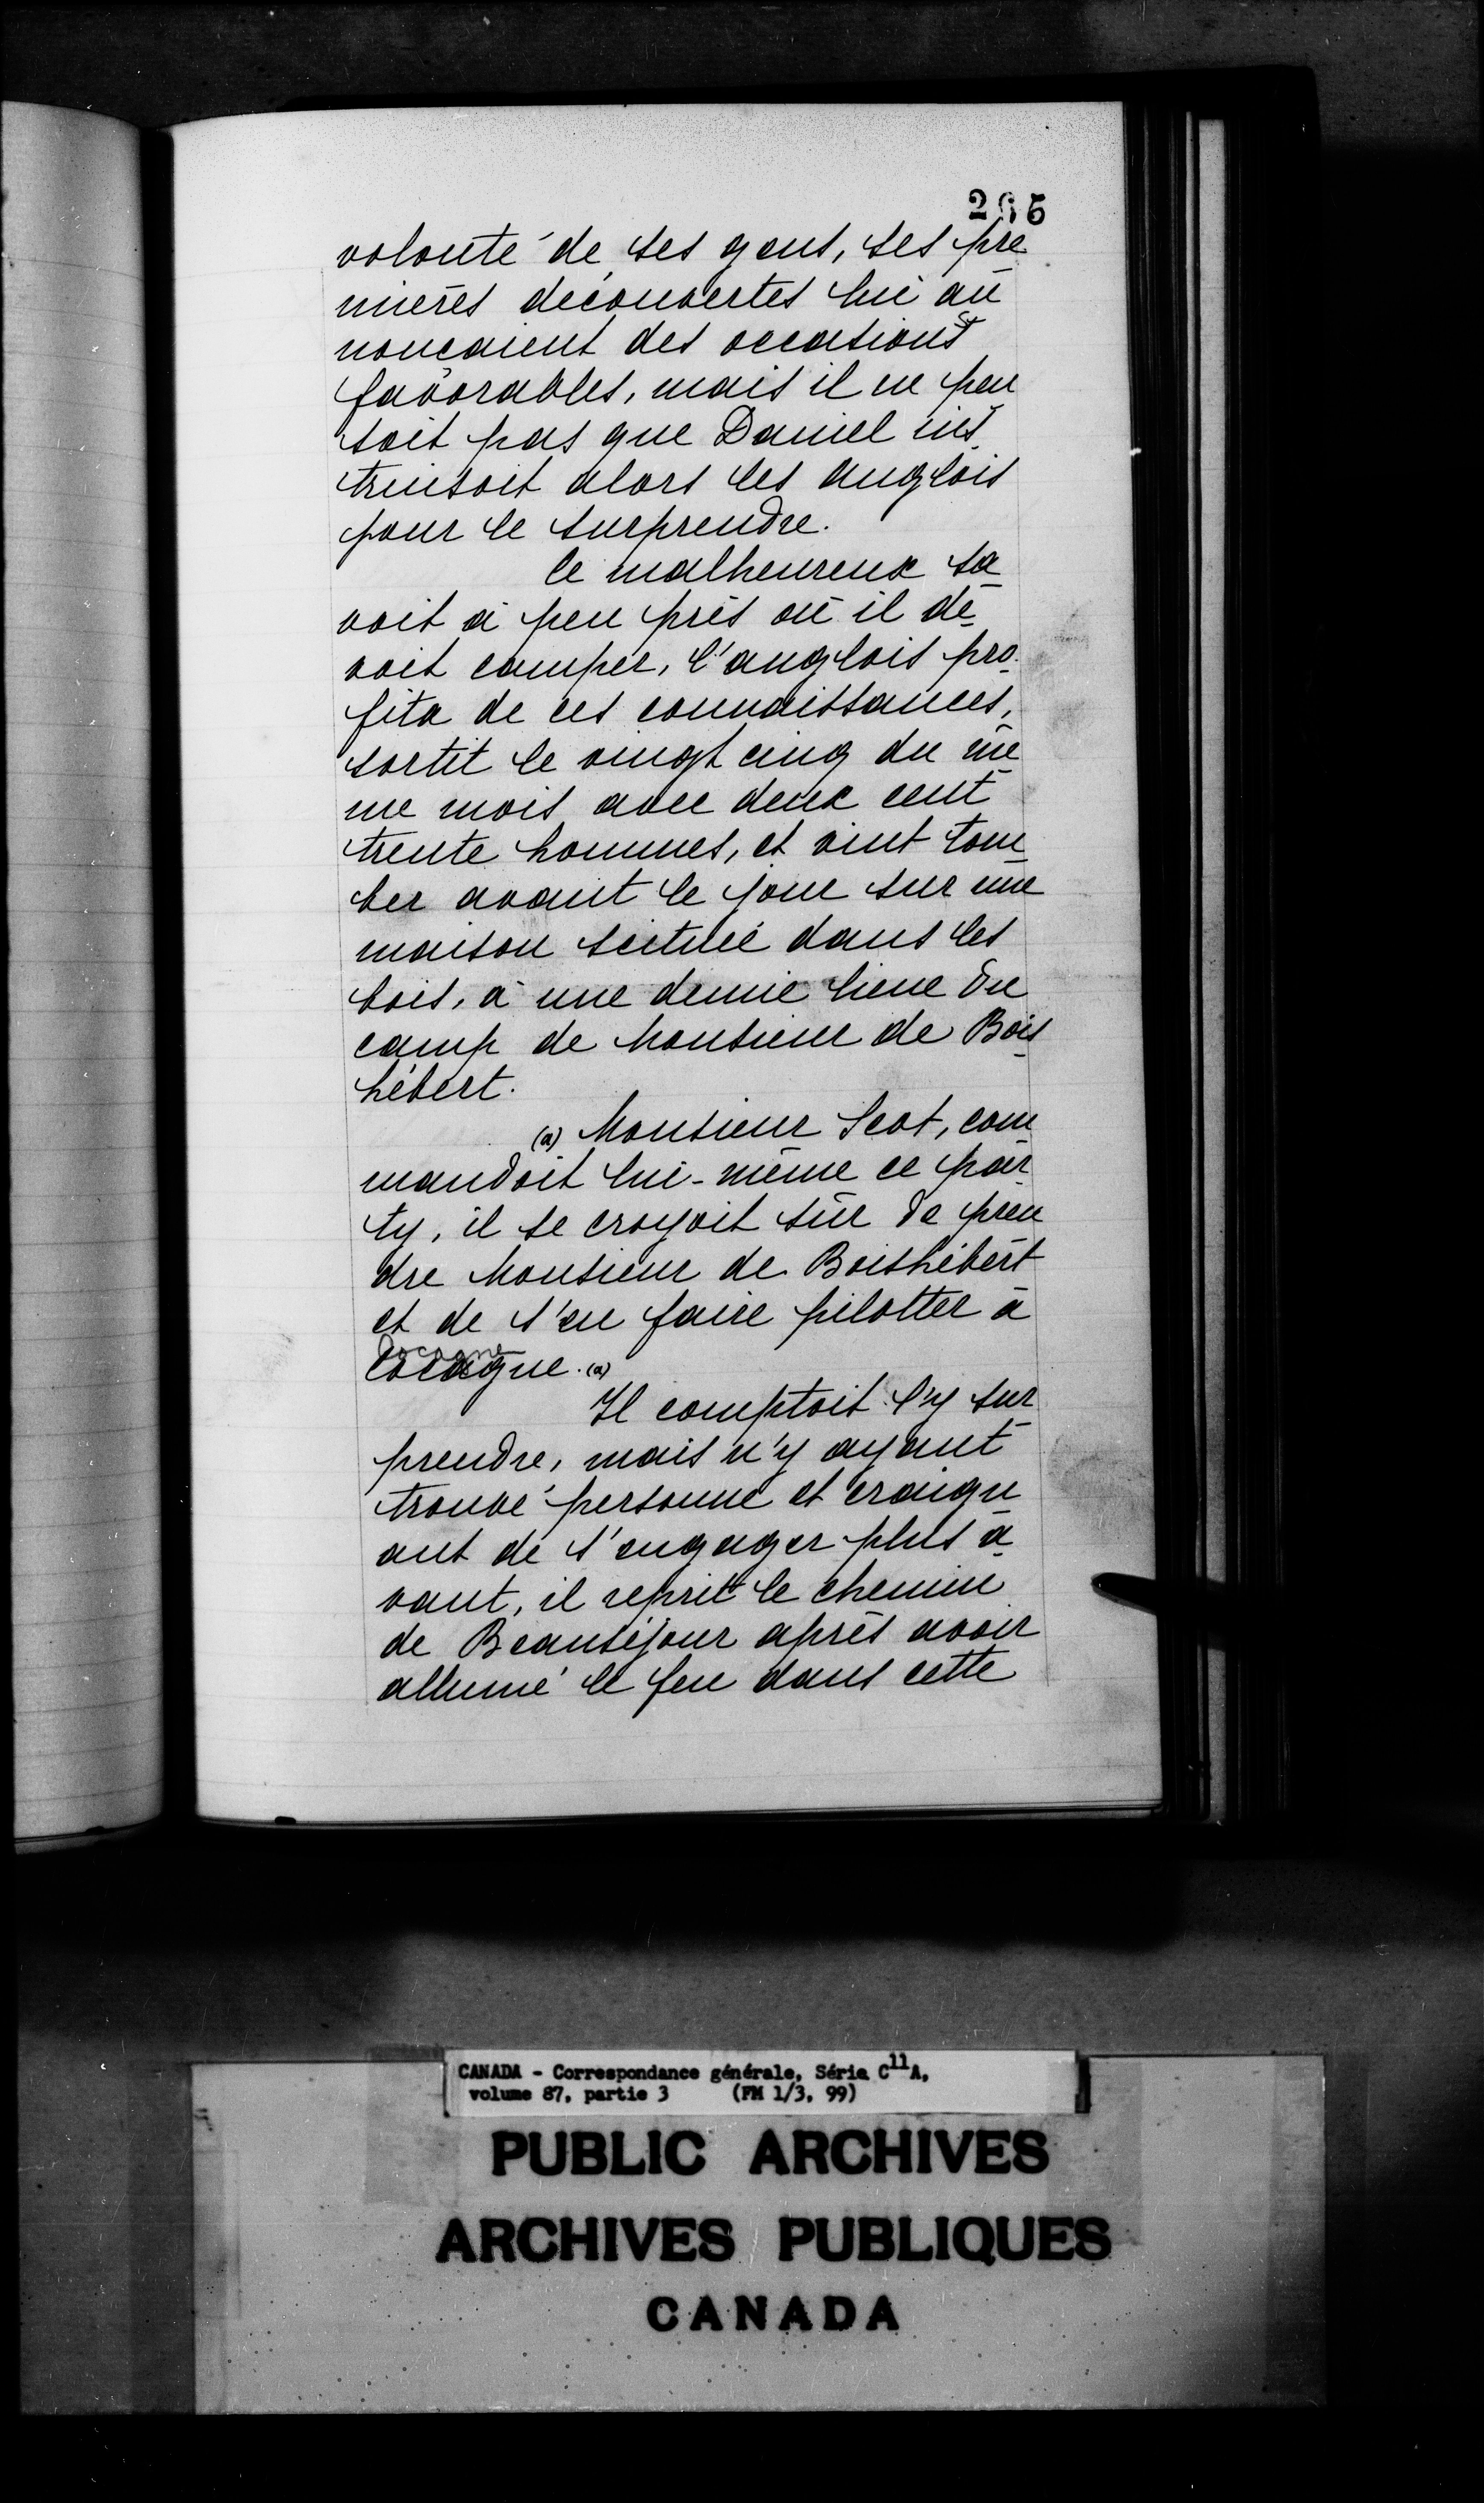 265
volonté de ses gens, ses pre
mières découvertes lui an
noncaient des occasions
favorables, mais il ne pen
soit pas que Daniel ins
truisoit alors les anglois
pour le surprendre.
Ce malheureux sa
voit à peu près où il de
voit camper, l'anglois pro
fita de ces connaissances,
sortit le vingt cinq du mê
me mois avec deux cent
trente hommes, et vint tom
ber avant le jour sur une
maison scituée dans les
bois, à une demie lieue du
camp de Monsieur de Bois
hébert.
(a) Monsieur Scot, com
mandoit lui-même ce par
ty, il se croyoit sûr de pren
dre Monsieur de Boishébert
et de s'en faire pilotter à
Cocagne
Cocagne. (a)
Il comptoit l'y sur
prendre, mais n'y ayant
trouvé personne et craign
ant de s'engager plus a
vant, il reprit le chemin
de Beauséjour après avoir
allumé le feu dans cette
CANADA - Correspondance générale, Série C11A,
volume 87, partie 3 (FM 1/3, 99)
PUBLIC ARCHIVES
ARCHIVES PUBLIQUES
CANADA